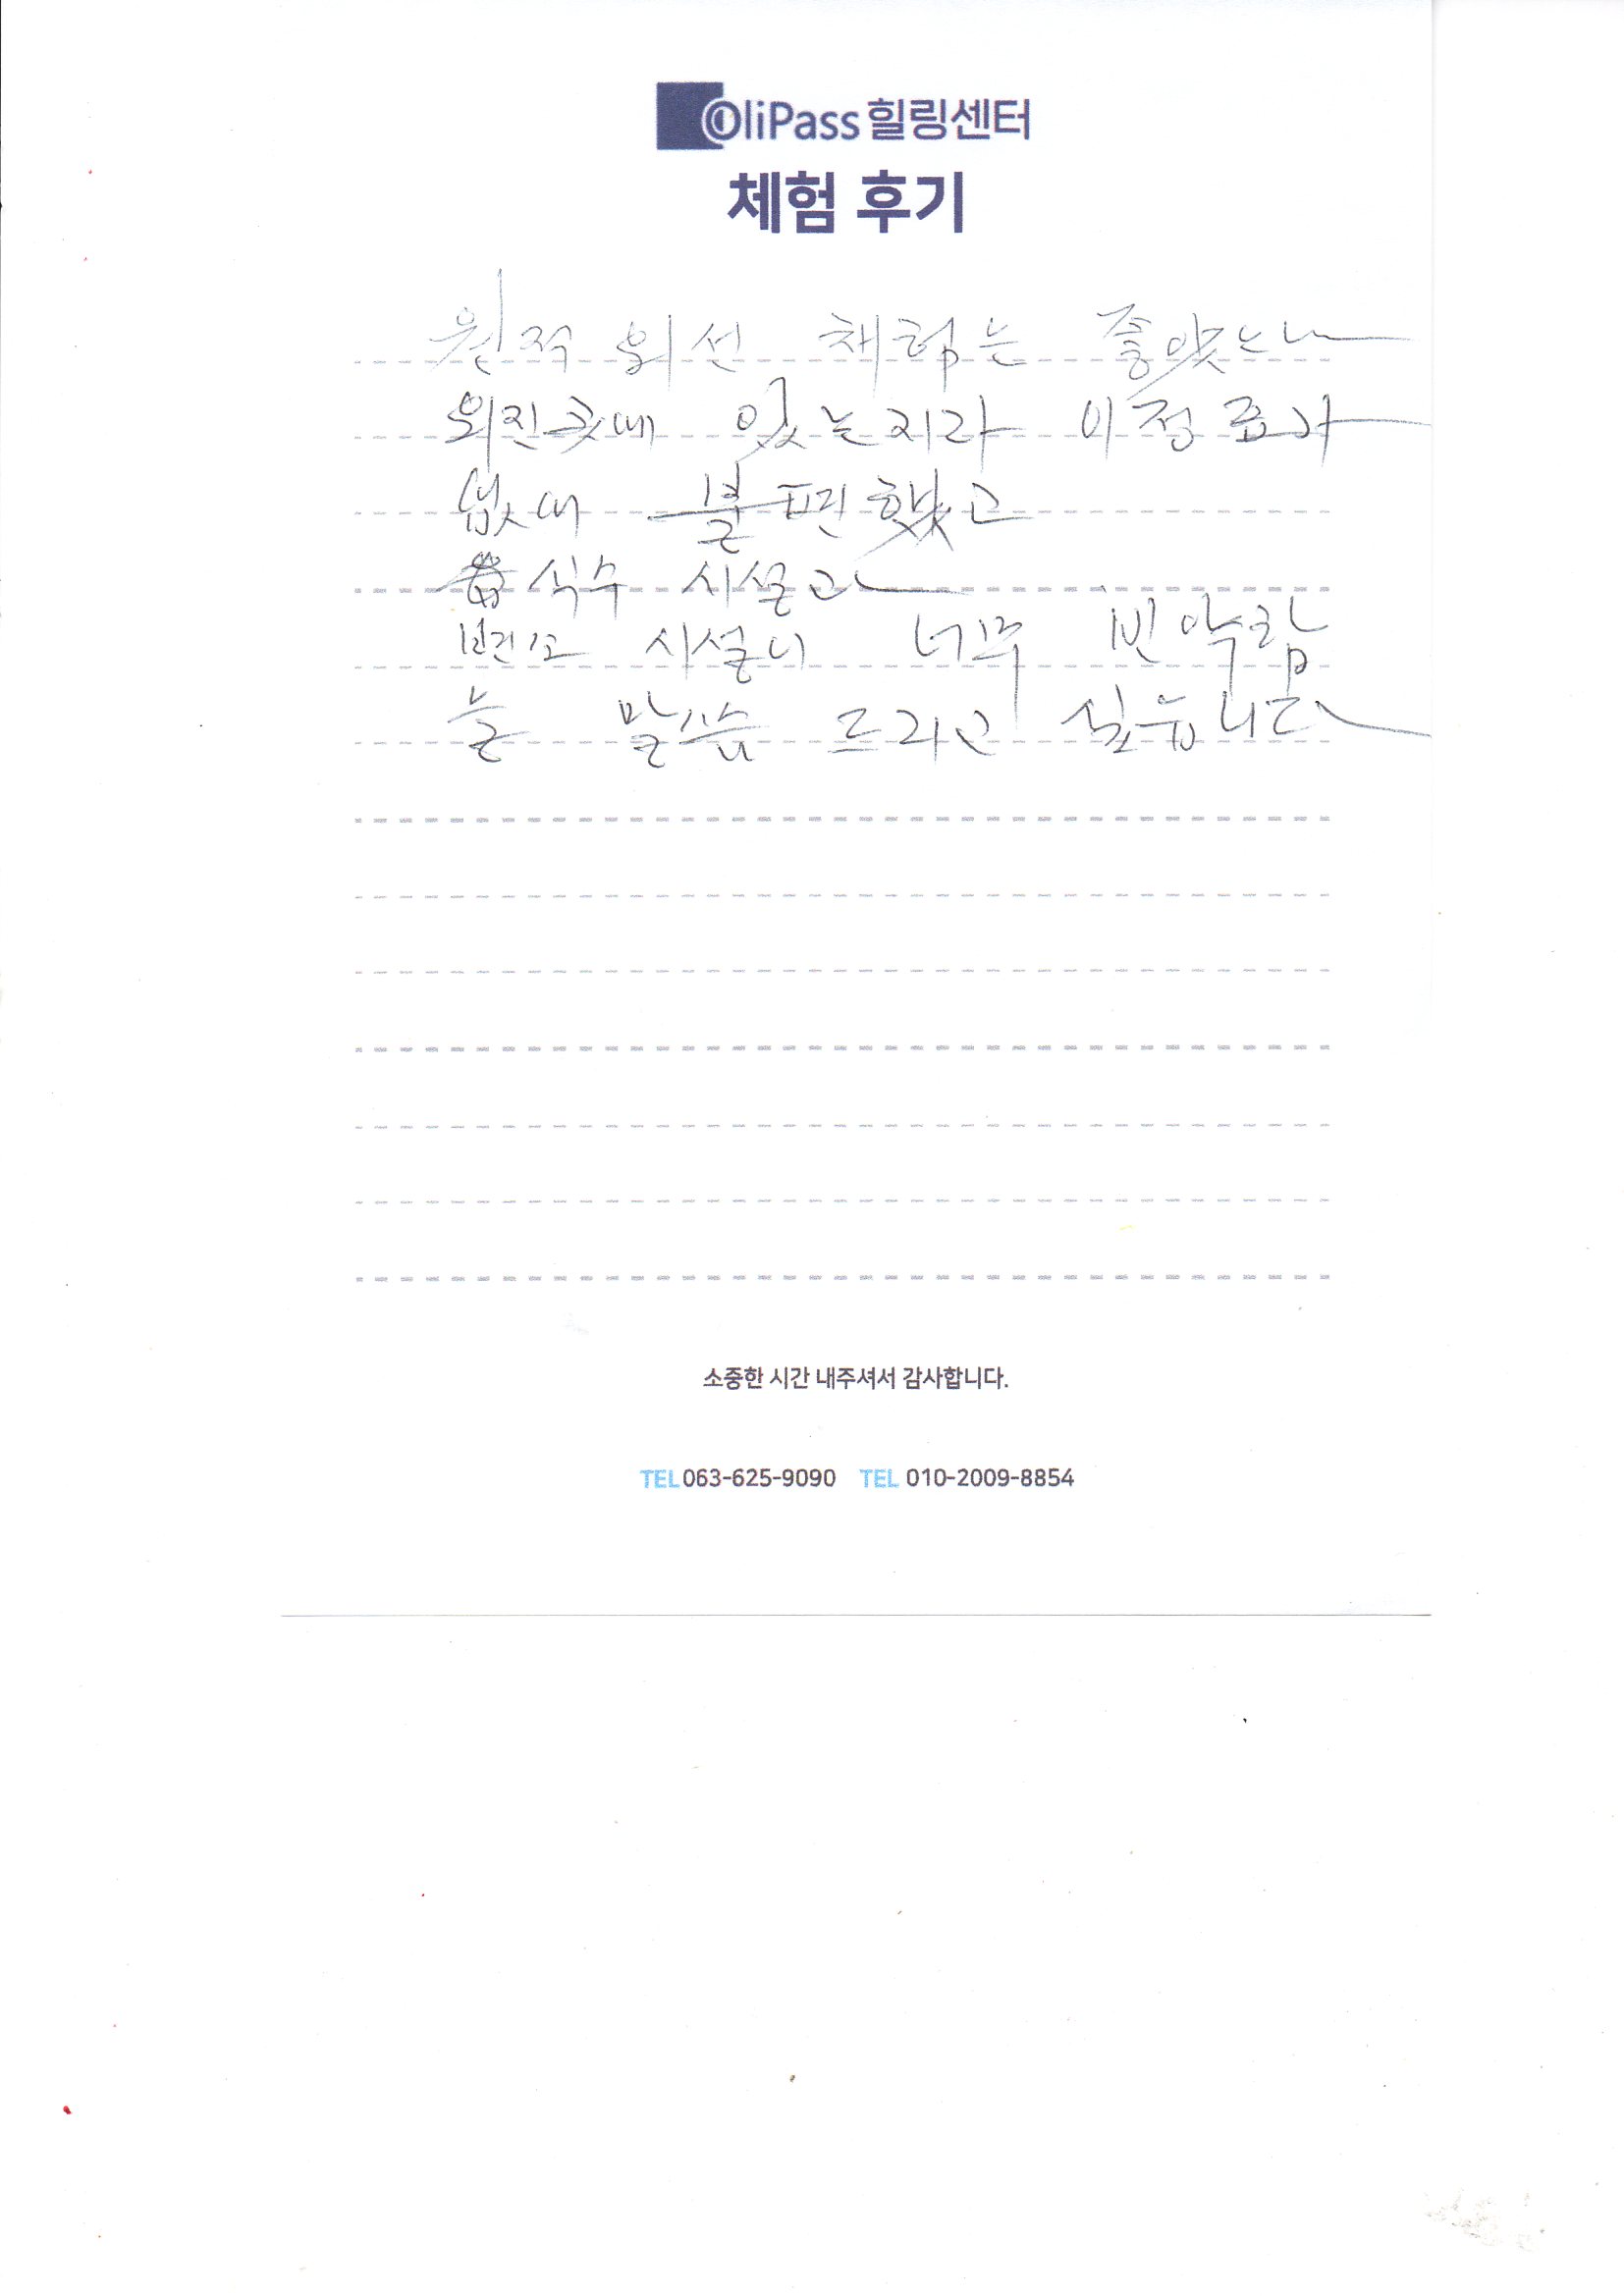 OliPass 힐링센터
체험 후기
원적 외선 체험는 좋았느나
외진곳에 있는지라 이정표가
없어 불편했고
식수 시설과
변소 시설니 너무 빈약함
늘 말씀 드리고 싶습니다
소중한 시간 내주셔서 감사합니다.
TEL 063-625-9090 TEL 010-2009-8854